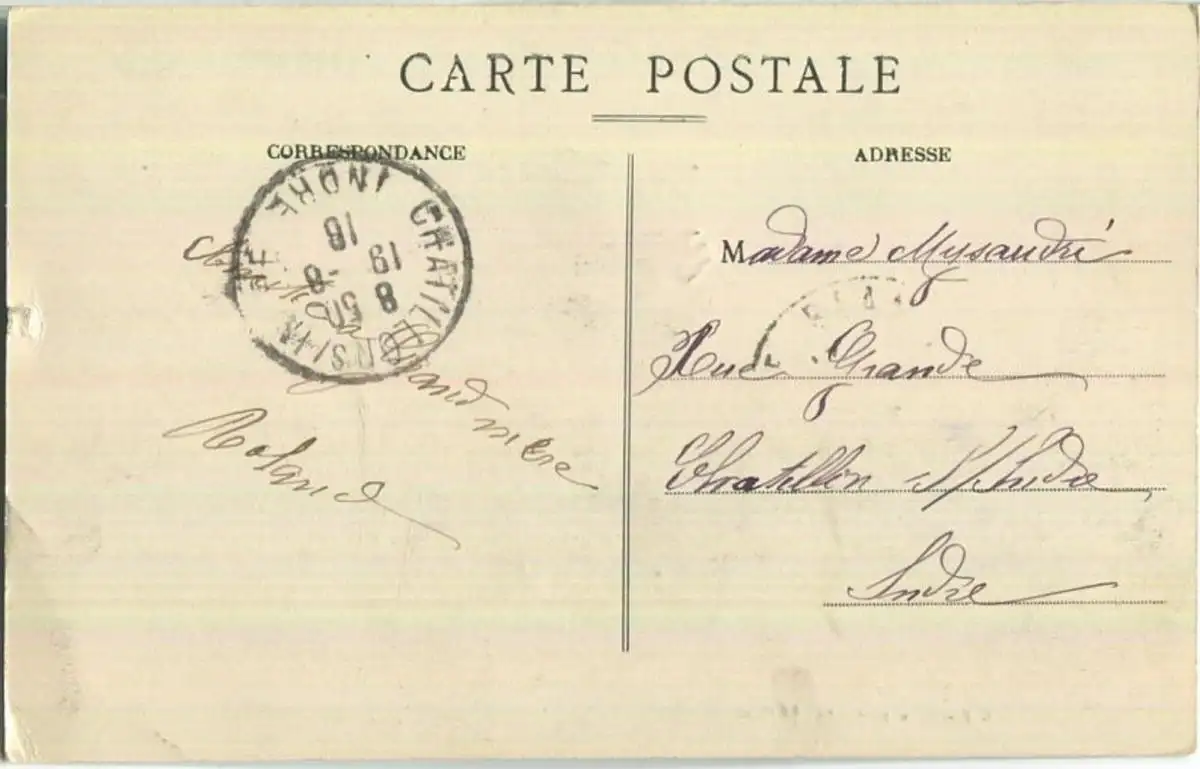 CARTE POSTALE
CORRESPONDANCE
ADRESSE
CHATILLON S IN
INDRE
18
19 -8
8 50
grand mère
Roland
Madame Mysandré
Rue Grande
Chatillon S/Indre
Indre